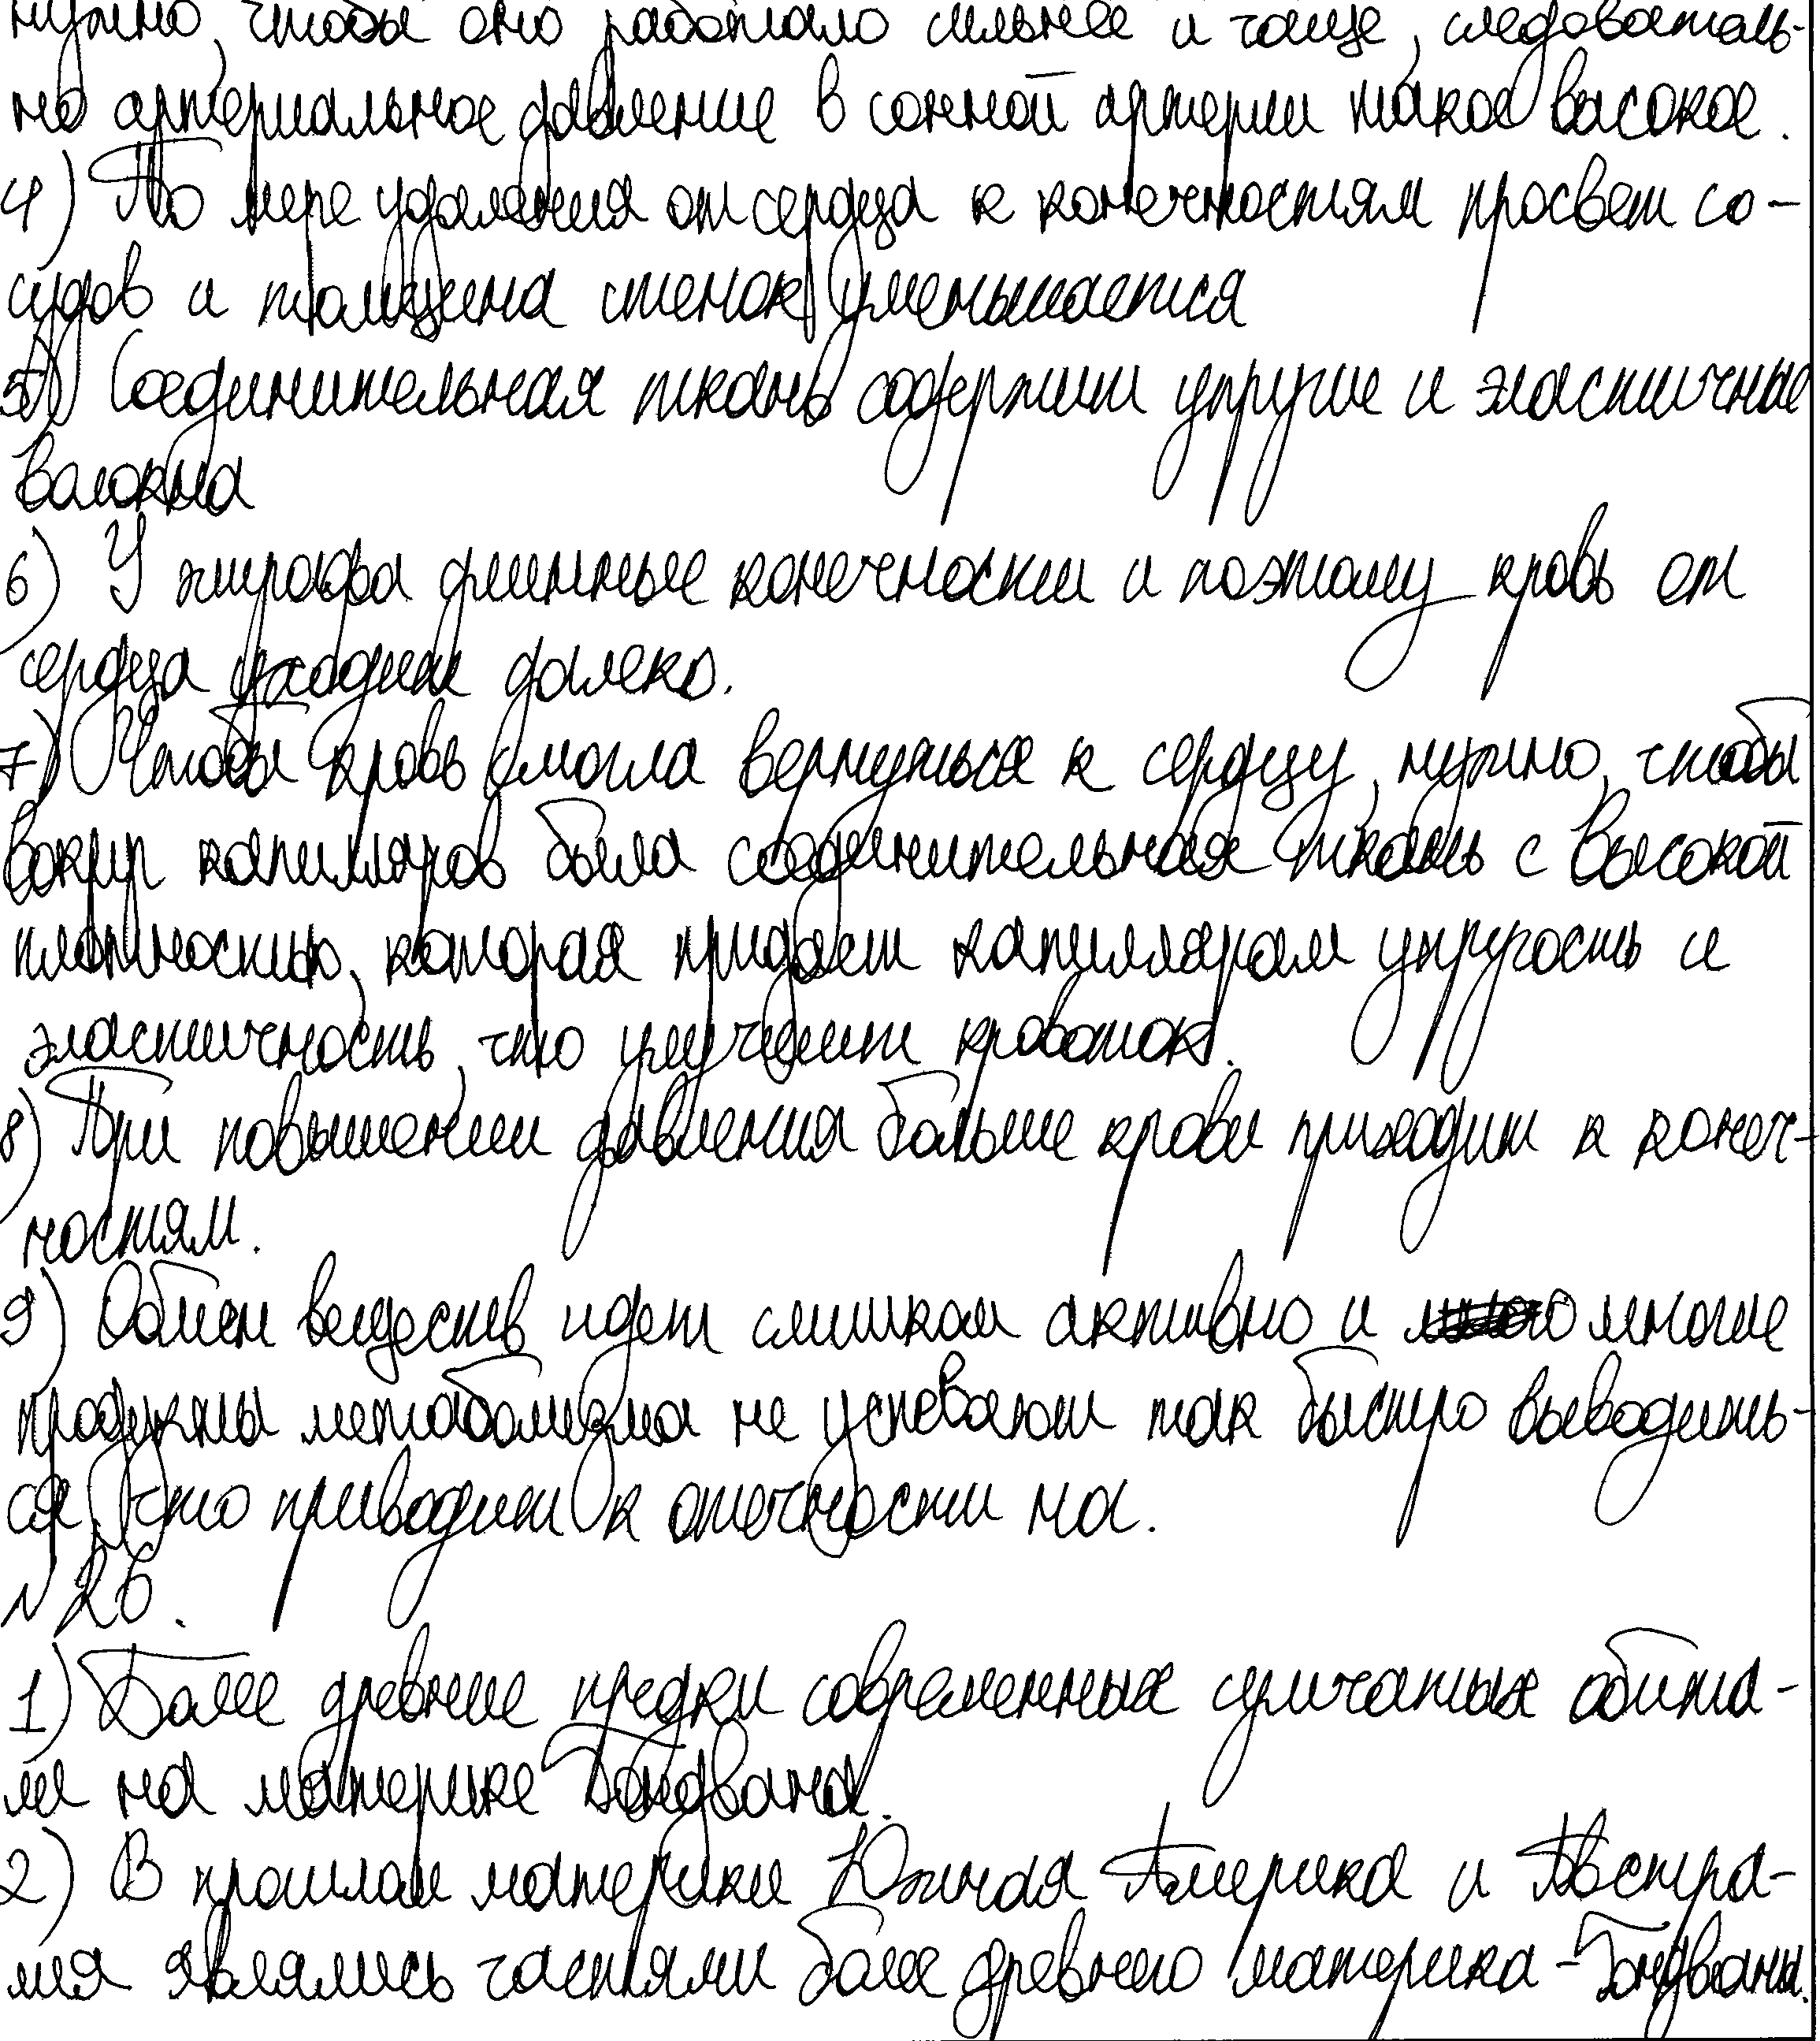 нужно, чтобы оно работало сильнее и чаще, следователь-
но артериальное давление в сонной артерии такое высокое.
4) По мере удаления от сердца к конечностям просвет со-
судов и толщина стенок уменьшается
5) Соединительная ткань содержит упругие и эластичные
волокна
6) У жирафа длинные конечности и поэтому кровь от
сердца уходит далеко.
7) Чтобы кровь смогла вернуться к сердцу, нужно, чтобы
вокруг капилляров была соединительная ткань с высокой
плотностью, которая придает капиллярам упругость и
эластичность, что улучшит кровоток.
8) При повышении давления больше крови приходит к конеч-
ностям.
9) Обмен веществ идет слишком активно и многие
продукты метаболизма не успевают так быстро выводить-
ся, что приводит к отечности на.
№26.
1) Более древние предки современных сумчатых обита-
ли на материке Гондвана.
2) В прошлом материки Южная Америка и Австра-
лия являлись частями более древнего материка - Гондваны.